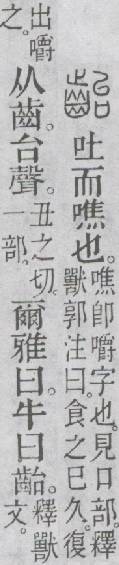 齝 吐而噍也。噍即嚼字也。見口部。釋
獸郭注曰。食之巳久。復
出嚼
之。
从齒。台聲。丑之切。
一部。
爾雅曰。牛曰齝。釋獸
文。